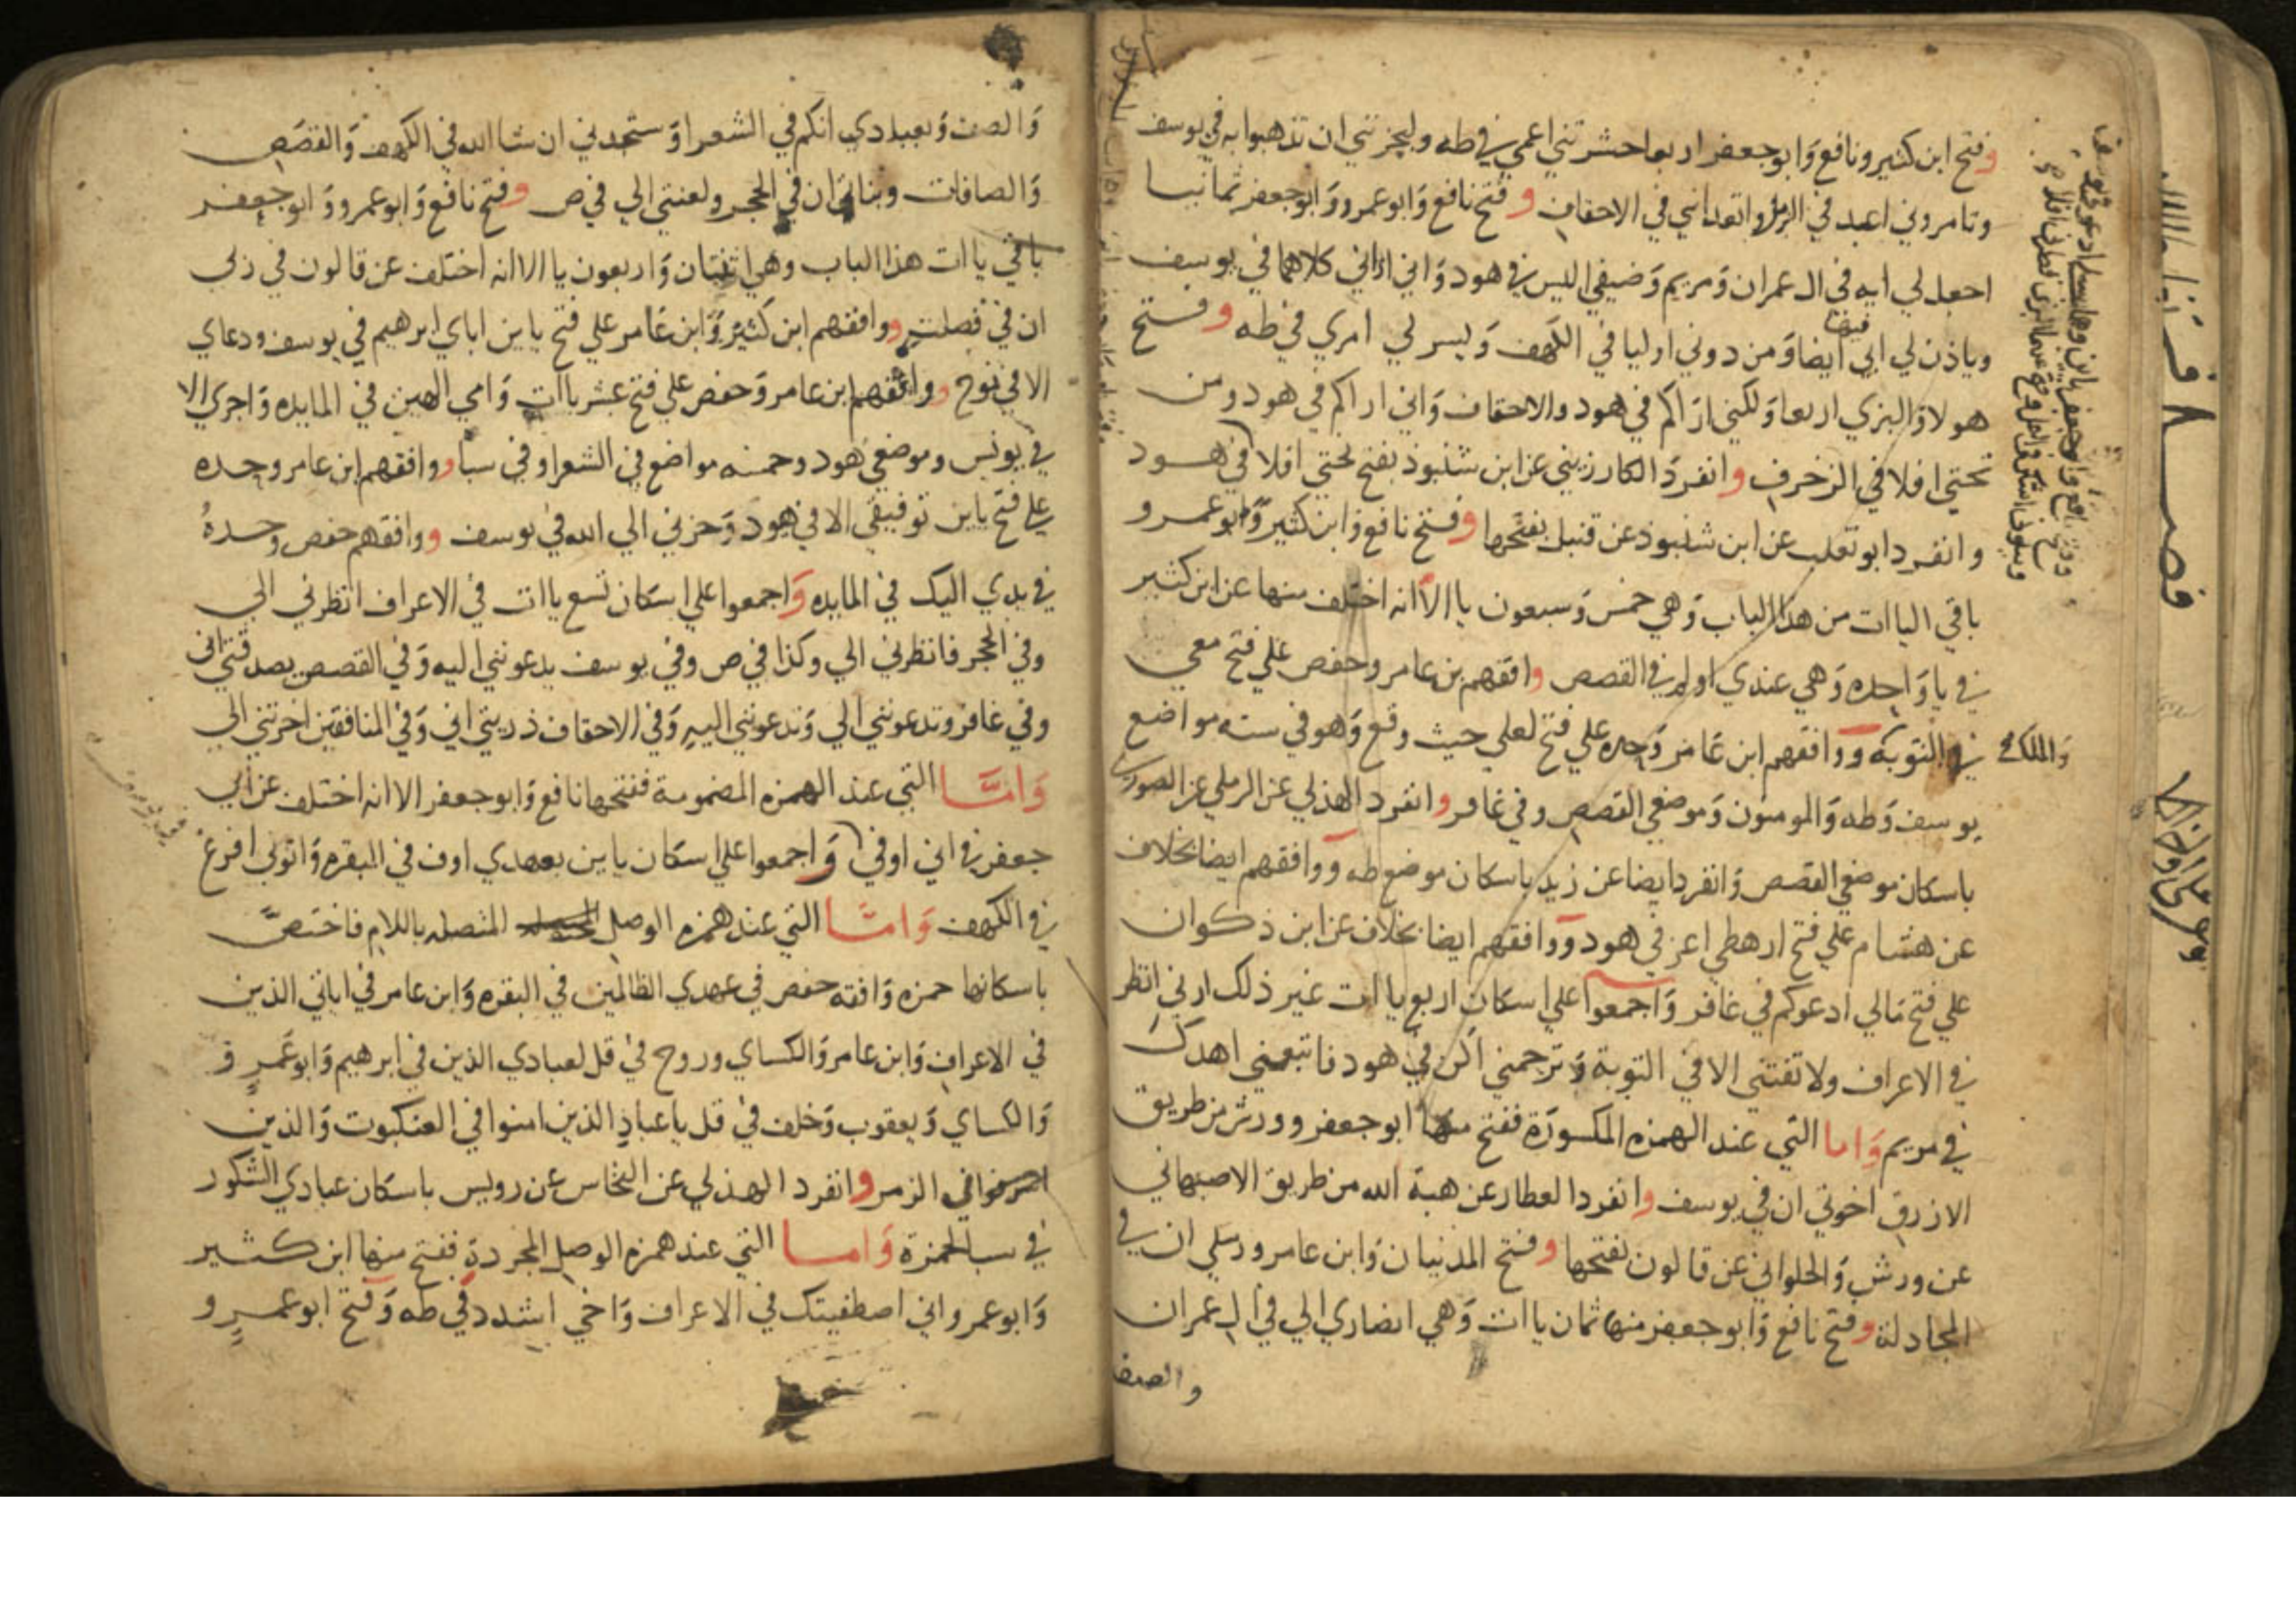 وفتح ابن كثير ونافع وَابو جعفر اربعا حشرتني اعمي في طه وليحزنني ان تذهبوا به في يوسف
وتامروني اعبد في الزمر واتعدانني في الاحقاف وفتح نافع وَابو عمرو وَابو جعفر ثمانيا
اجعل لي ايه في ال عمران وَمريم وَضيفي اليس في هود وَاني اراني كلاهما في يوسف
وياذن لي ابي فيها ايضا وَمن دوني اوليا في الكهف وَيسر لي امري في طه وفتح
هولا وَالبزي اربعا وَلكني اراكم في هود والاحقاف وَاني اراكم في هود ومن
تحتي افلا في الزخرف وانفرد الكارزيني عن ابن شنبوذ بفتح تحتي افلا في هود
وانفرد ابو تغلب عن ابن شنبوذ عن قنبل بفتحها وفتح نافع وَابن كثير وَابو عمرو
باقي الياات من هذا الباب وَهي خمس وَسبعون يا الا انه اختلف منها عن ابن كثير
في يا وَاحده وَهي عندي اولم في القصص وافقهم بن عامر وحفص علي فتح معي
في التوبة والملك ووافقهم ابن عامر وَحده علي فتح لعلي حيث وقع وَهو في سته مواضع
يوسف وَطه وَالمومنون وَموضعي القصص وفي غافر وانفرد الهذلي عن الرملي عن الصوري
باسكان موضعي القصص وَانفرد ايضا عن زيد باسكان موضع طه ووافقهم ايضا بخلاف
عن هشام علي فتح ارهطي اعز في هود ووافقهم ايضا بخلاف عن ابن ذكوان
علي فتح مالي ادعوكم في غافر وَاجمعوا علي اسكان اربع ياات غير ذلك ارني انظر
في الاعراف ولا تفتني الا في التوبة وَترحمني اكن في هود فاتبعني اهدك
في مريم وَاما التي عند الهمزه المكسورَة ففتح منها ابو جعفر وورش من طريق
الازرق اخوتي ان في يوسف وانفرد العطار عن هبة الله من طريق الاصبهاني
عن ورش وَالحلواني عن قالون بفتحها وفتح المدنيان وَابن عامر ورسلي ان في
المجادلة وفتح نافع وَابو جعفر منها ثمان ياات وَهي انصاري الي في ال عمران
والصف
وَالصف وَبعبادي انكم في الشعرا وَستجدني ان شا الله في الكهف وَالقصَص
وَالصافات وبناتي ان في الحجر ولعنتي الي في ص وفتح نافع وَابو عمرو وَابو جعفر
باقي ياات هذا الباب وهي اثنتان وَاربعون يا الا انه اختلف عن قالون في ربي
ان في فصلت ووافقهم ابن كثير وَابن عَامر علي فتح ياين اباي ابرهيم في يوسف ودعاي
الا في نوح ووافقهم ابن عامر وَحفص علي فتح عشر ياات وَامي الهين في المايده وَاجري الا
في يونس وموضعي هود وخمسه مواضع في الشعرا وفي سبا ووافقهم ابن عامر وحده
علي فتح ياين توفيقي الا في هود وَحزني الي الله في يوسف ووافقهم حفص وحدهُ
في يدي اليك في المايده وَاجمعوا علي اسكان تسع ياات في الاعراف انظرني الي
وفي الحجر فانظرني الي وكذا في ص وفي يوسف يدعونني اليه وَفي القصص يصدقني اني
وفي غافر وتدعونني الي وَتدعونني اليه وَفي الاحقاف ذريتي اني وَفي المنافقين اخرتني الي
وَامَّا التي عند الهمزه المضمومة ففتحها نافع وَابو جعفر الا انه اختلف عن ابي
جعفر في اني اوفي وَاجمعوا علي اسكان ياين بعهدي اوف في البقره وَاتوني افرغ
في الكهف وَامَّا التي عند همزه الوصل المتصله باللام فاختصَّ
باسكانها حمزه وَافقه حفص في عهدي الظالمين في البقره وَابن عامر في اياتي الذين
في الاعراف وَابن عامر وَالكساي وروح في قل لعبادي الذين في ابرهيم وَابو عَمرٍو
وَالكساي وَيعقوب وَخلف في قل يا عباد الذين امنوا في العنكبوت وَالذين
اسرفوا في الزمر وانفرد الهذلي عن النخاس عن رويس باسكان عبادي الشكور
في سبا لحمزة وَاما التي عند همزه الوصل المجردة ففتح منها ابن كثير
وَابو عمرو اني اصطفيتك في الاعراف وَاخي اشدد في طه وَفتح ابو عمرٍو